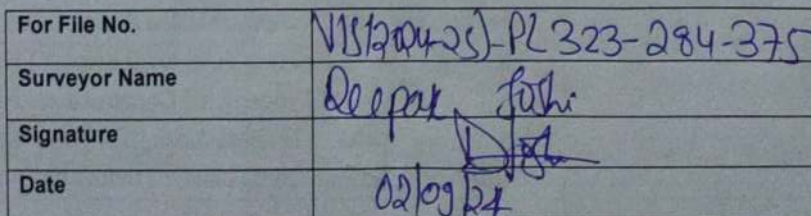 For File No. VIS(2024-25)-PL323-284-375
Surveyor Name Deepak Joshi
Signature
Date 02/09/24